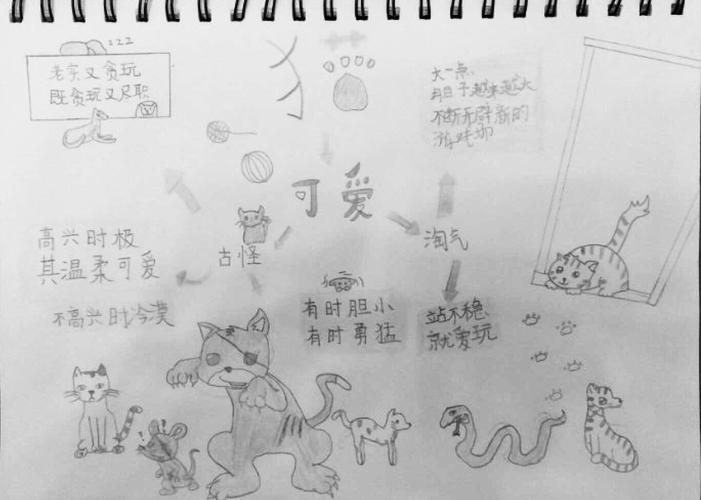 zzz
老实又贪玩
既贪玩又尽职
大一点
胆子越来越大
不断开辟新的
游戏场
可爱
古怪
淘气
高兴时极
其温柔可爱
不高兴时冷漠
有时胆小
有时勇猛
站不稳
就爱玩